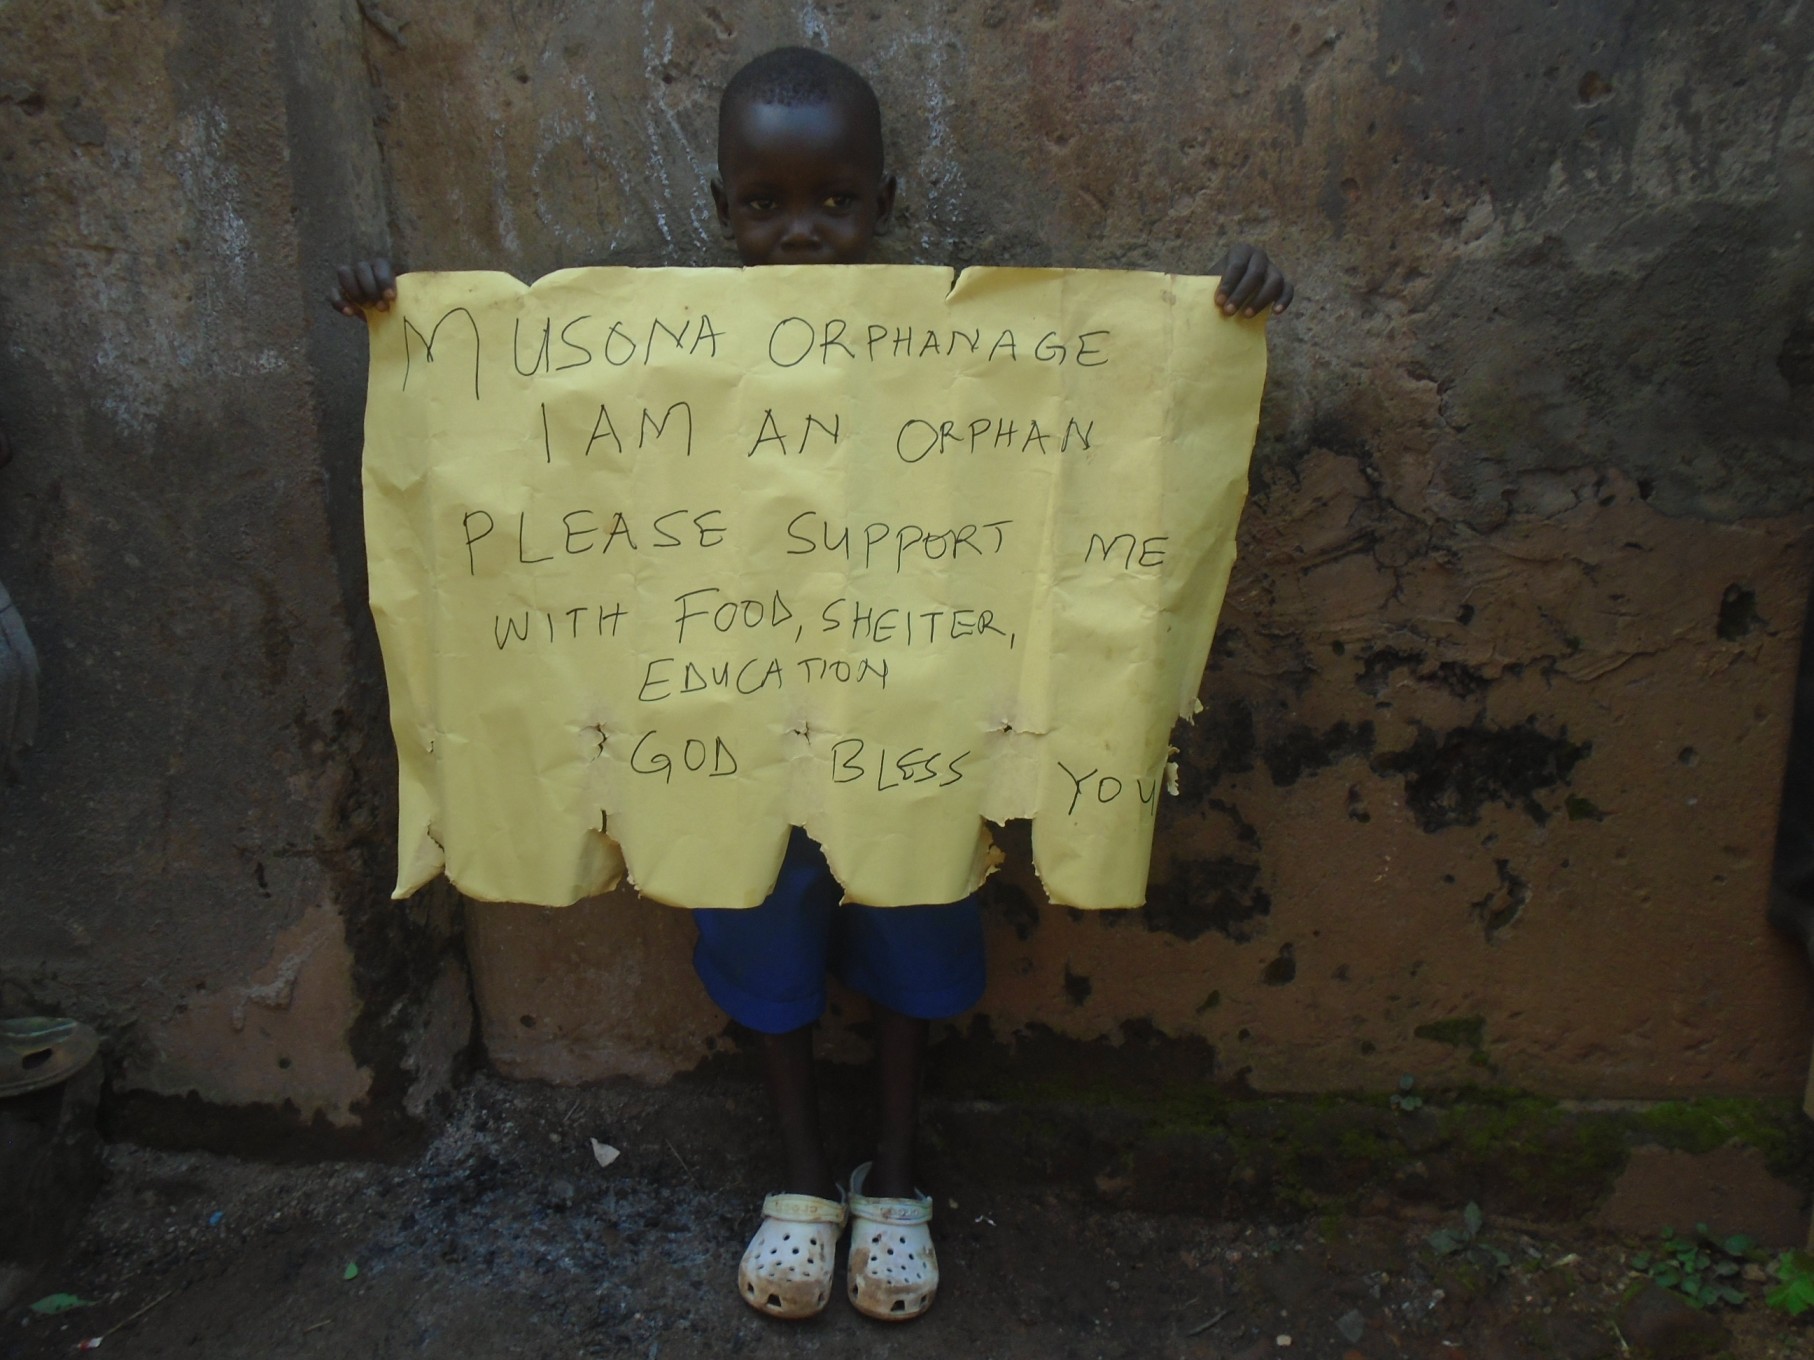 MUSONA ORPHANAGE
I AM AN ORPHAN
PLEASE SUPPORT ME
WITH FOOD, SHEITER,
EDUCATION
GOD BLESS YOU